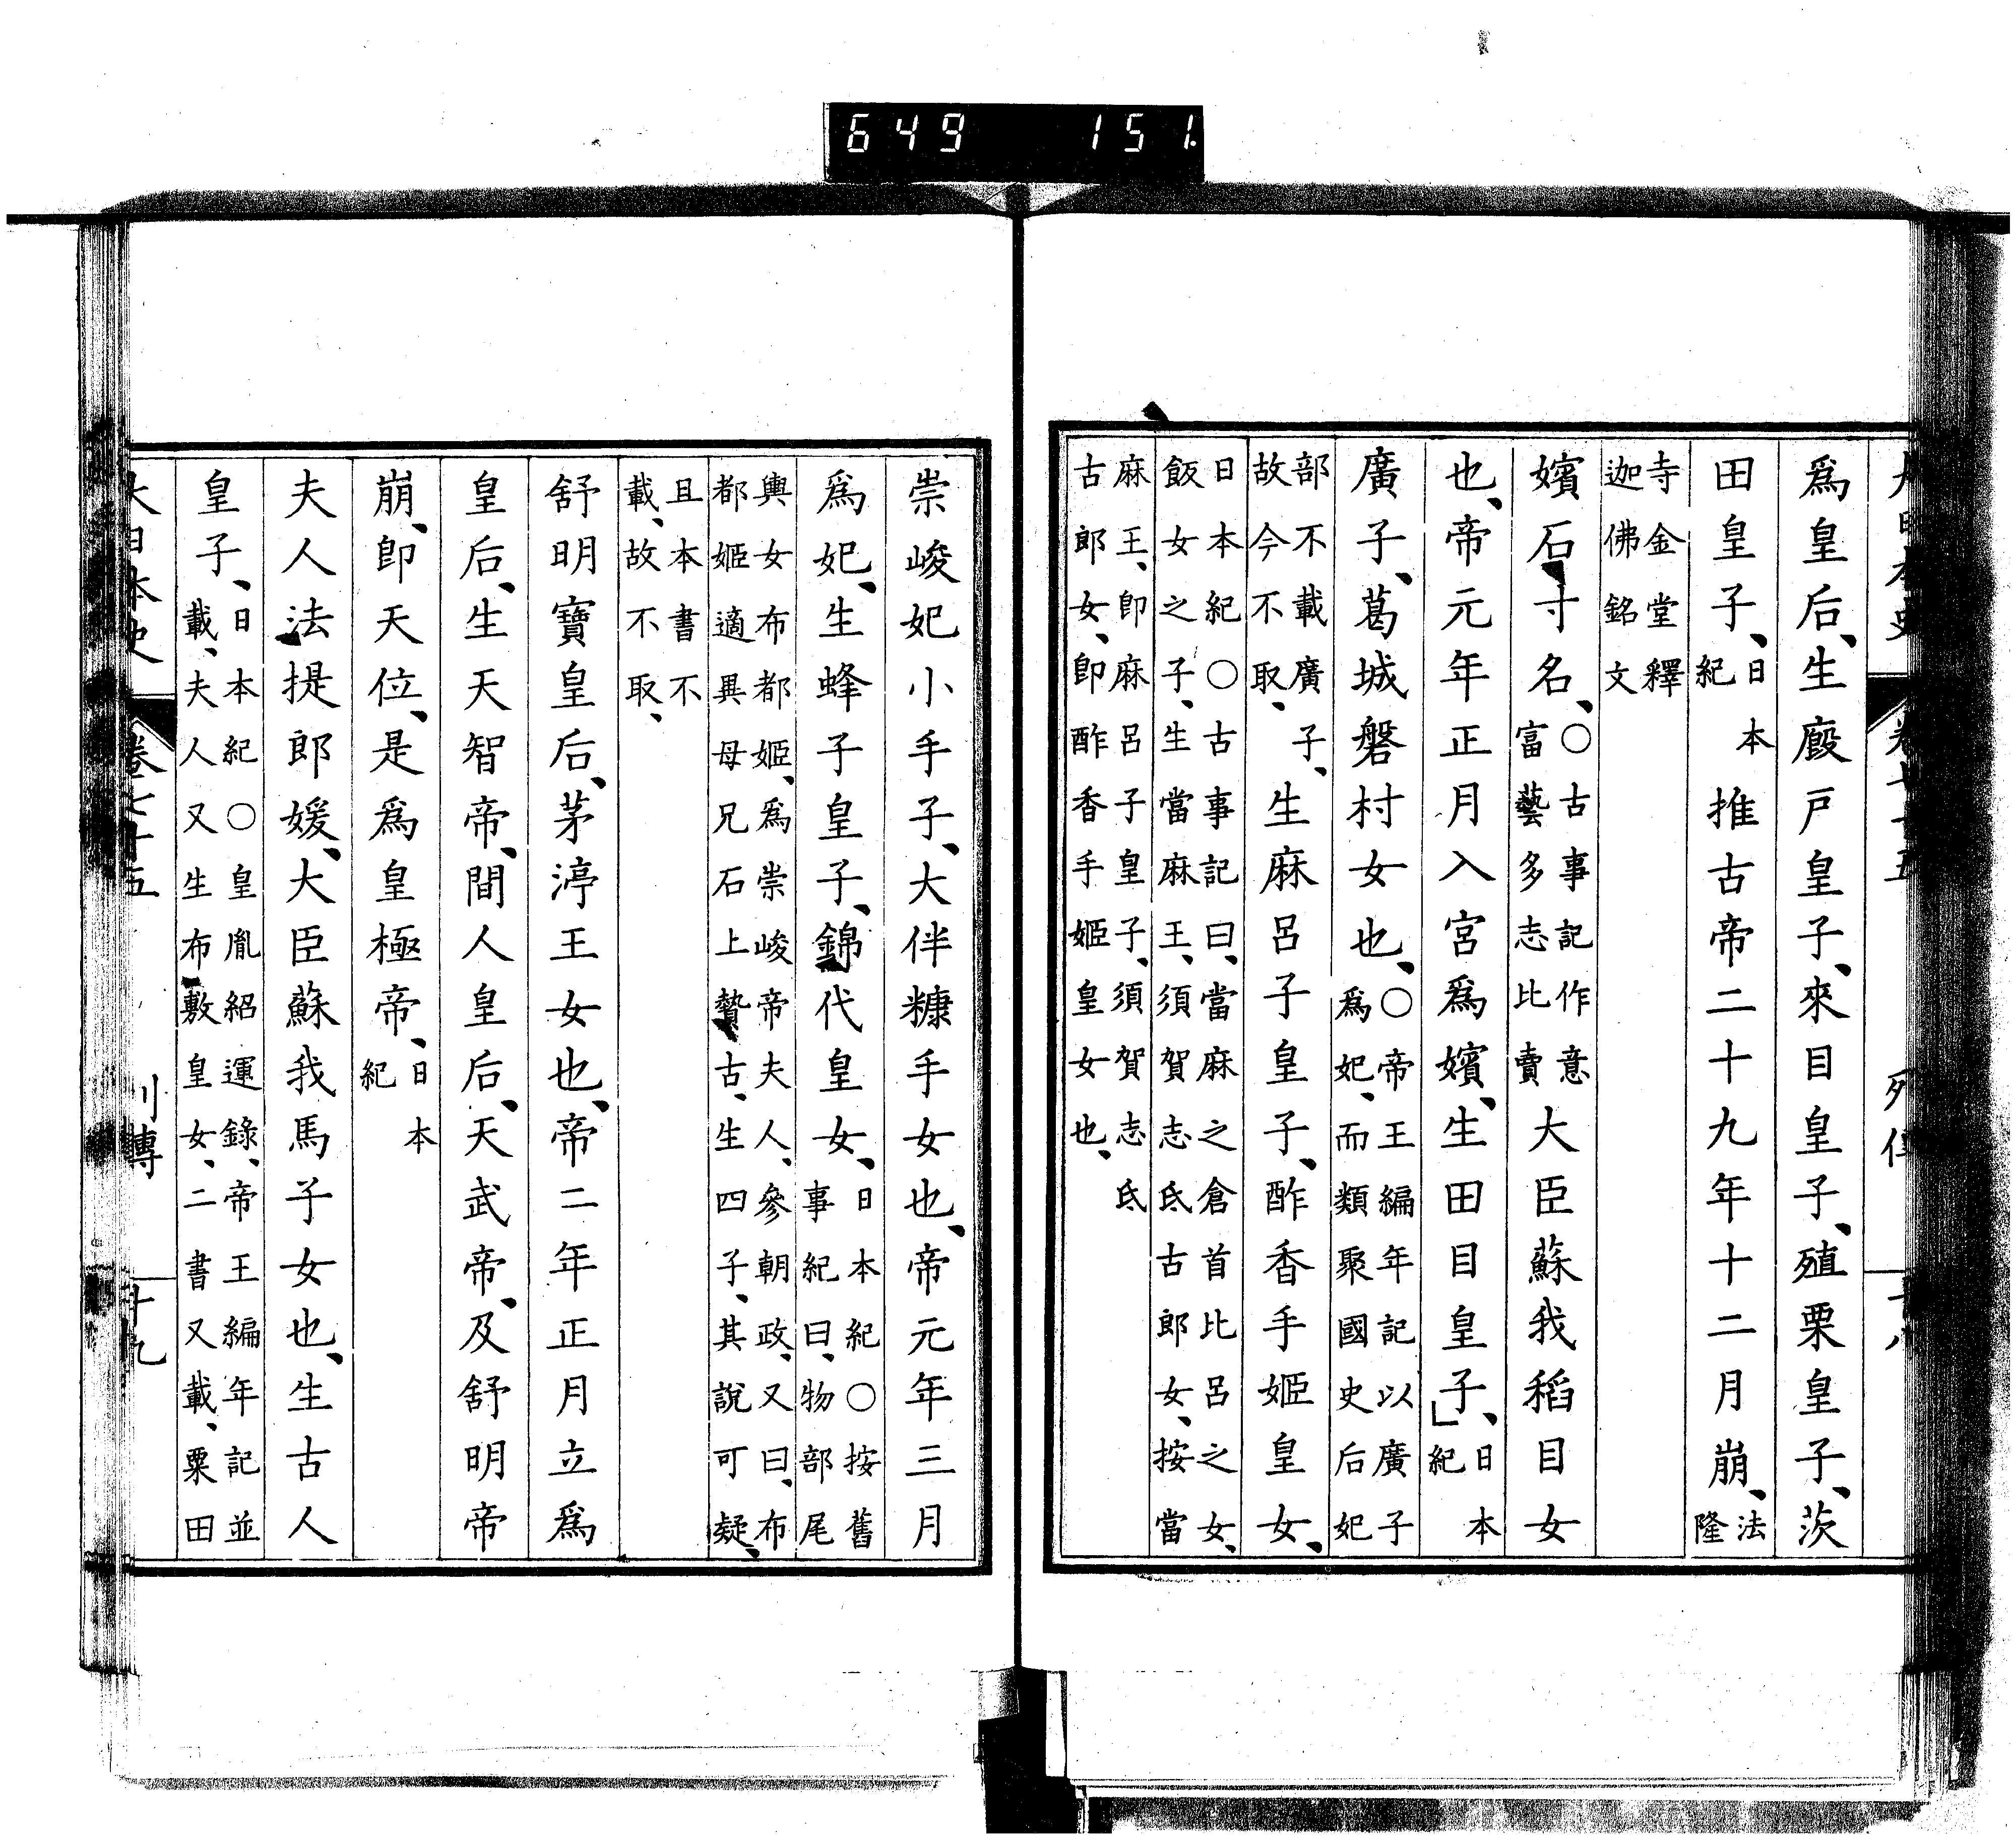 649 151.
爲皇后、生廐戸皇子、來目皇子、殖栗皇子、茨
田皇子、日本紀推古帝二十九年十二月崩、法隆
寺金堂釋
迦佛銘文
嬪石寸名、○古事記作意富藝多志比賣大臣蘇我稻目女
也、帝元年正月入宮爲嬪、生田目皇子、」日本紀
廣子、葛城磐村女也、○帝王編年記以廣子爲妃、而類聚國史后妃
部不載廣子、故今不取、生麻呂子皇子、酢香手姬皇女、
日本紀○古事記曰、當麻之倉首比呂之女、
飯女之子、生當麻王、須賀志氐古郎女、按當
麻王、卽麻呂子皇子、須賀志氐
古郎女、卽酢香手姬皇女也、
崇峻妃小手子、大伴糠手女也、帝元年三月
爲妃、生蜂子皇子、錦代皇女、日本紀○按舊事紀曰、物部尾
輿女布都姬、爲崇峻帝夫人、參朝政、又曰、布
都姬適異母兄石上贄古、生四子、其說可疑、
且本書不
載、故不取、
舒明寶皇后、茅渟王女也、帝二年正月立爲
皇后、生天智帝、間人皇后、天武帝、及舒明帝
崩、卽天位、是爲皇極帝、日本紀
夫人法提郎媛、大臣蘇我馬子女也、生古人
皇子、日本紀○皇胤紹運錄、帝王編年記並載、夫人又生布敷皇女、二書又載、粟田
大日本史 卷七十五 列傳 十九